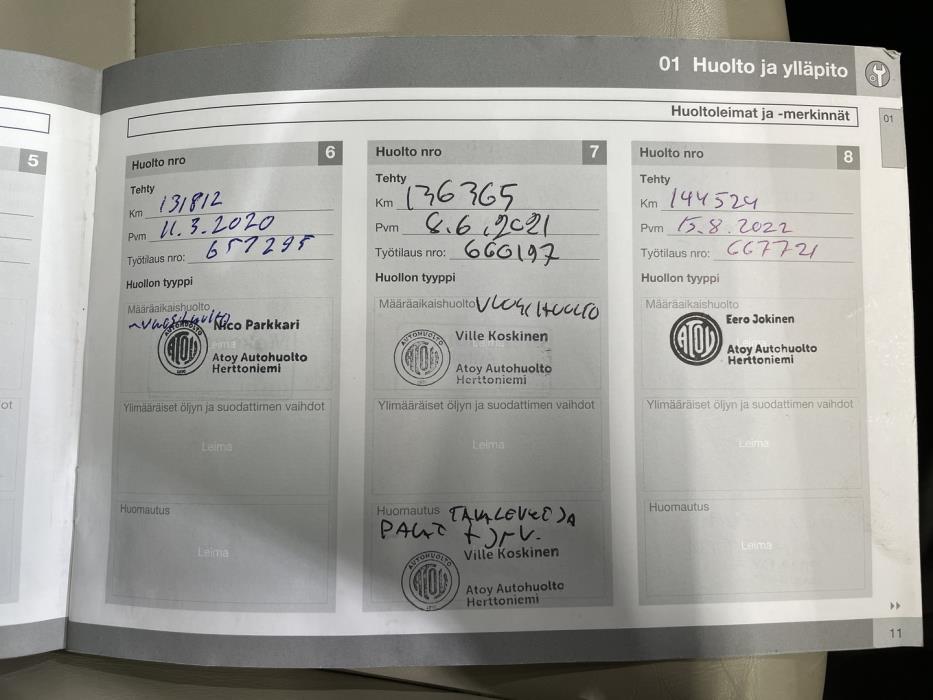 01 Huolto ja ylläpito
Huoltoleimat ja -merkinnät
01
5
ot
Huolto nro 6
Tehty
Km 131812
Pvm 11.3.2020
Työtilaus nro: 657295
Huollon tyyppi
Määräaikaishuolto
Nico Parkkari
AUTOHUOLTO
ATOY
Leima
Atoy Autohuolto
Herttoniemi
Ylimääräiset öljyn ja suodattimen vaihdot
Leima
Huomautus
Leima
Huolto nro 7
Tehty
Km 136365
Pvm 8.6.2021
Työtilaus nro: 660197
Huollon tyyppi
Määräaikaishuolto VUOSIHUOLTO
Ville Koskinen
AUTOHUOLTO
ATOY
Atoy Autohuolto
Herttoniemi
Ylimääräiset öljyn ja suodattimen vaihdot
Leima
Huomautus
Ville Koskinen
AUTOHUOLTO
ATOY
Atoy Autohuolto
Herttoniemi
Huolto nro 8
Tehty
Km 144524
Pvm 15.8.2022
Työtilaus nro: 667721
Huollon tyyppi
Määräaikaishuolto
Eero Jokinen
ATOY
Leima
Atoy Autohuolto
Herttoniemi
Ylimääräiset öljyn ja suodattimen vaihdot
Leima
Huomautus
Leima
11